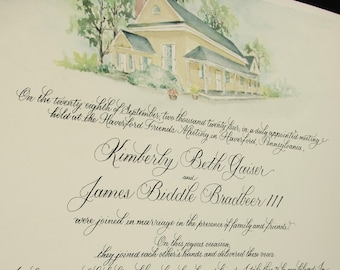 On the twenty eighth of September, two thousand twenty four, in a duly appointed meeting
held at the Haverford Friends Meeting in Haverford, Pennsylvania,
Kimberly Beth Gaiser
and
James Biddle Bradbeer III
were joined in marriage in the presence of family and friends.
On this joyous occasion,
they joined each other's hands, and delivered their vows